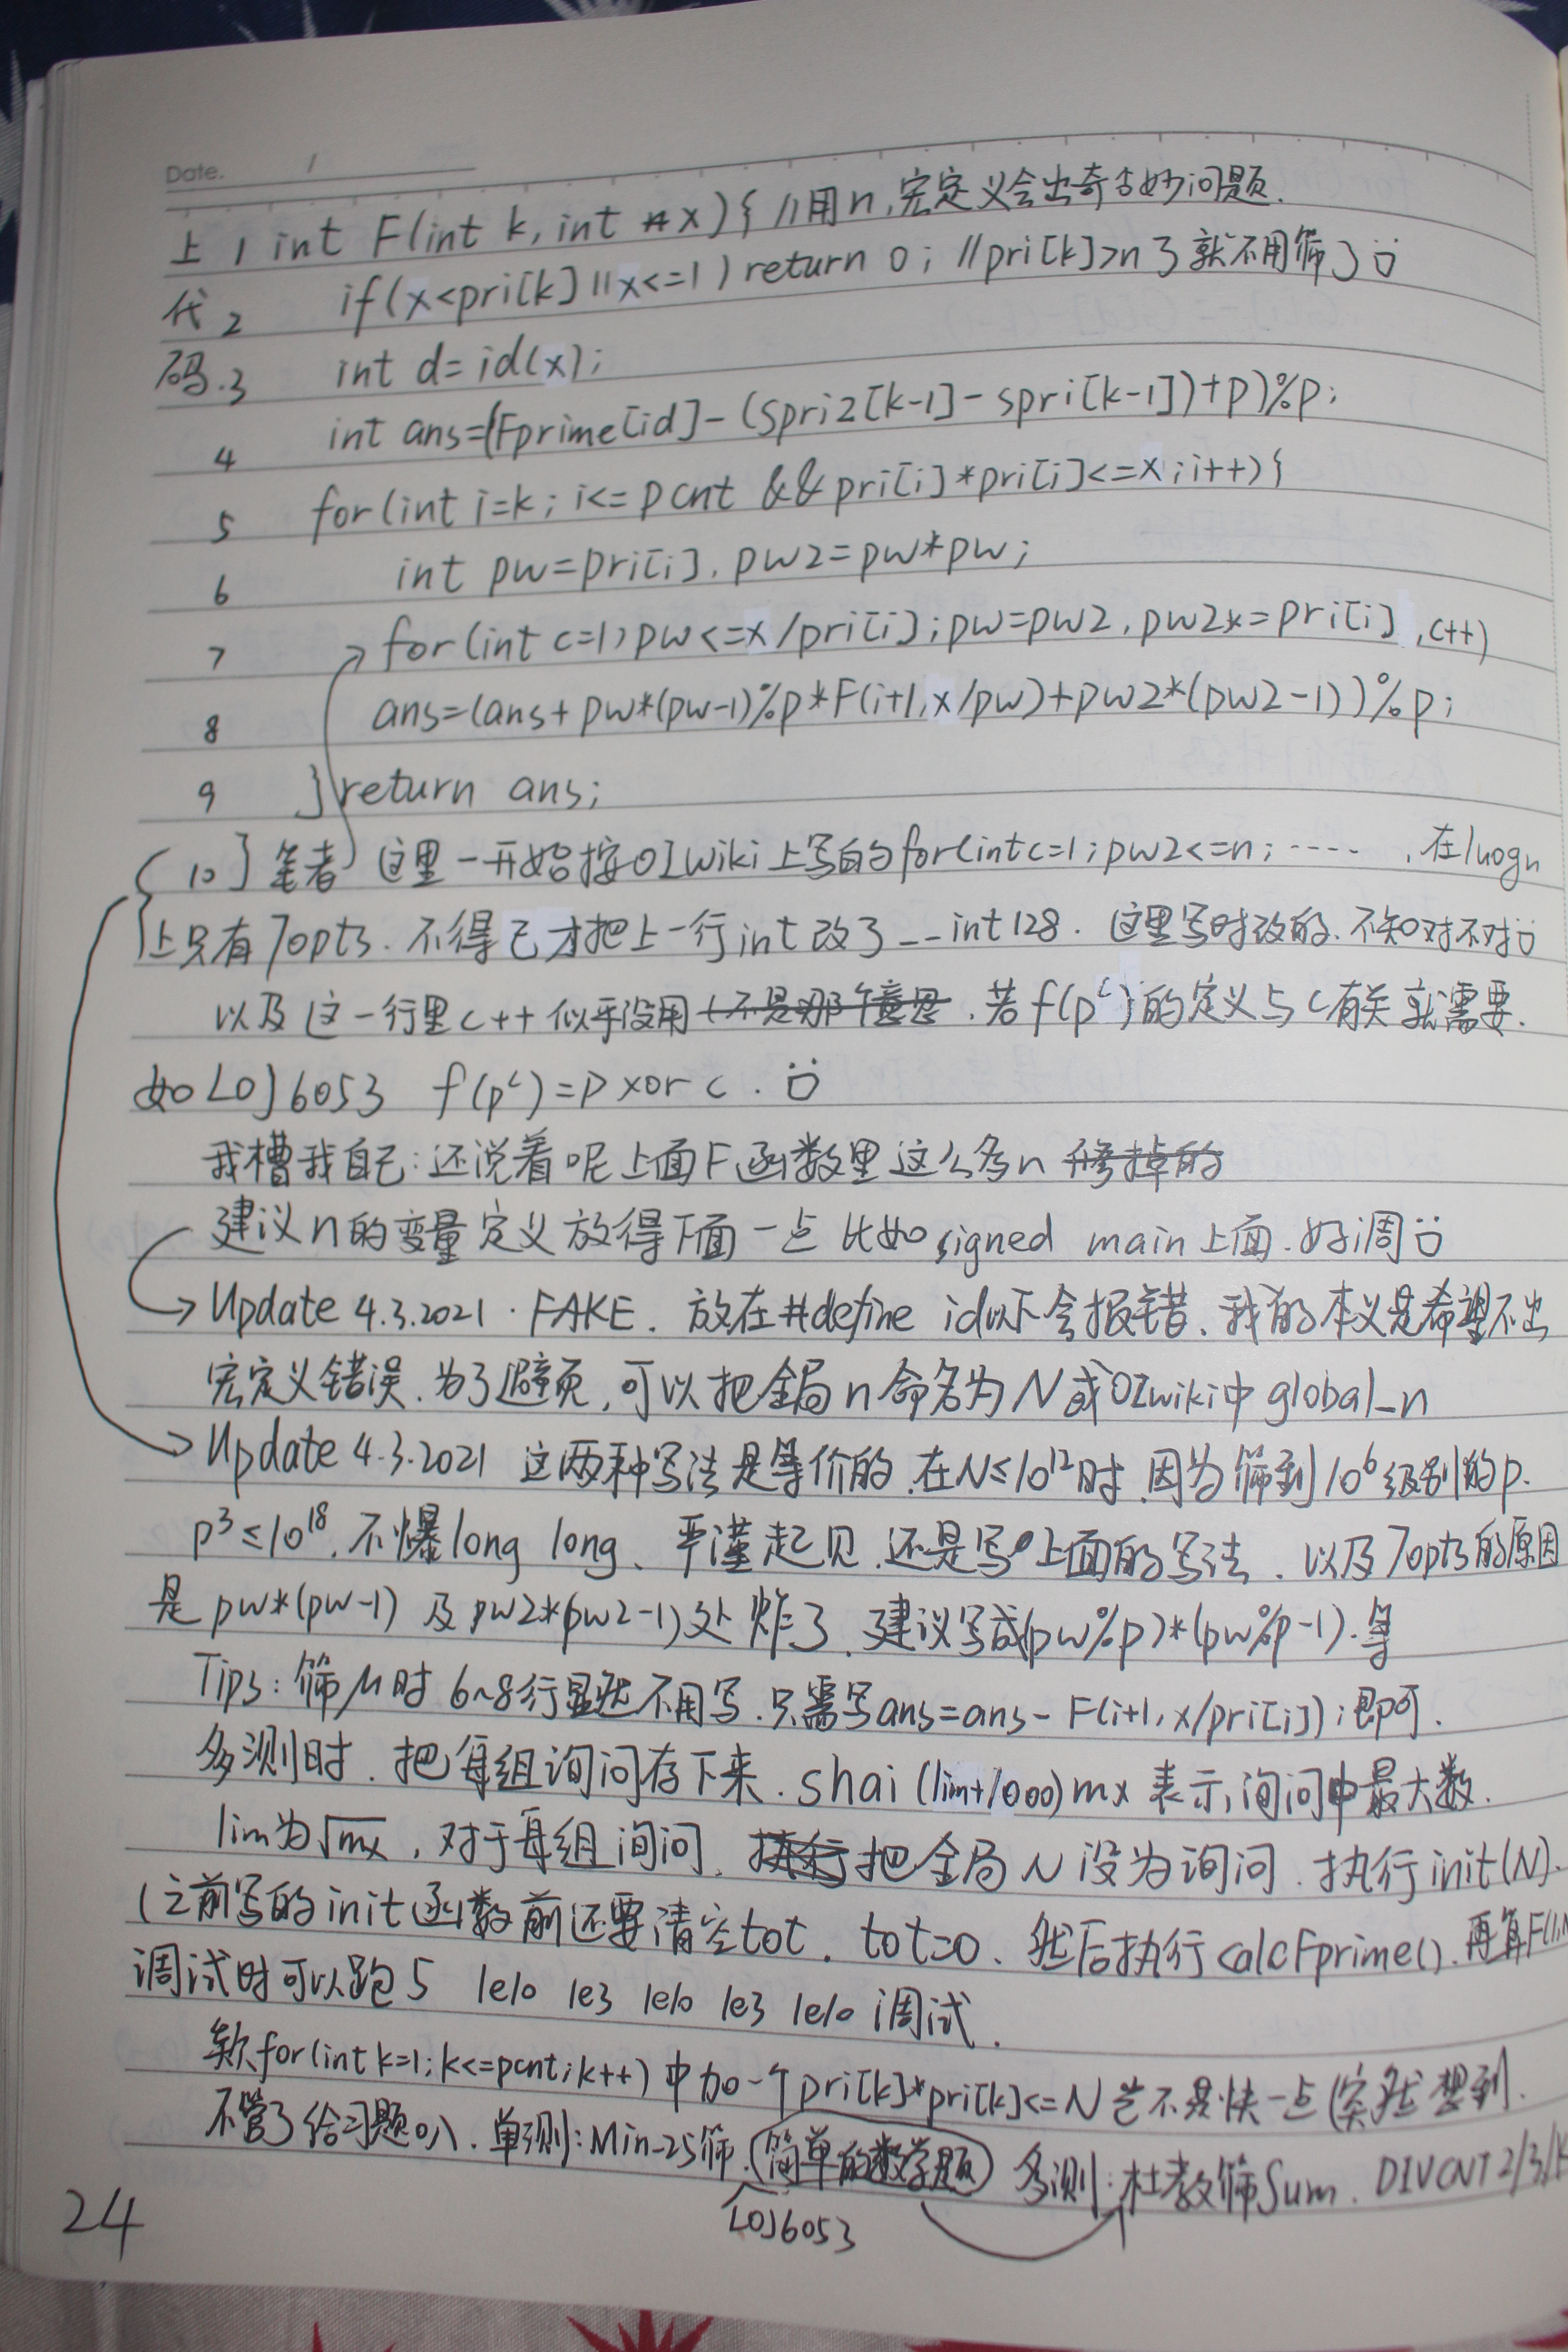 Date. /
上 1 int F(int k, int x) { //用n,宏定义会出奇奇妙问题.
代 2 if(x<pri[k]||x<=1) return 0; //pri[k]>n了就不用筛了
码.3 int d=id(x);
4 int ans=(Fprime[id]-(spri2[k-1]-spri[k-1])+p)%p;
5 for(int i=k; i<=pcnt && pri[i]*pri[i]<=x;i++){
6 int pw=pri[i], pw2=pw*pw;
7 for(int c=1;pw<=x/pri[i];pw=pw2,pw2*=pri[i],c++)
8 ans=(ans+pw*(pw-1)%p*F(i+1,x/pw)+pw2*(pw2-1))%p;
9 }return ans;
10 } 笔者 这里一开始按OI Wiki上写的for(int c=1;pw2<=n;····· ,在luogu
上只有70pts.不得已才把上一行int改了__int128. 这里写时改的.不知对不对
以及这一行里c++似乎没用(不是那个意思.若f(p^c)的定义与c有关就需要.
如LOJ6053 f(p^c)=p xor c.
我槽我自己:还说着呢上面F函数里这么多n 掉的
建议n的变量定义放得下面一点 比如signed main上面.好调
Update 4.3.2021. FAKE. 放在#define id以下会报错、我的本义是希望不出
宏定义错误.为了避免,可以把全局n命名为N或OIwiki中global_n
Update 4.3.2021 这两种写法是等价的.在N≤10^12时.因为筛到10^6级别的p.
p^3≤10^18.不爆long long、严谨起见.还是写上面的写法. 以及70pts的原因
是pw*(pw-1)及pw2*(pw2-1)处炸了.建议写成(pw%p)*(pw%p-1).等
Tips:筛μ时6~8行显然不用写.只需写ans=ans-F(i+1,x/pri[i]);即可.
多测时.把每组询问存下来.shai(lim+1000)mx表示询问中最大数.
lim为√mx,对于每组询问.执行把全局N设为询问.执行init(N).
(之前写的init函数前还要清空tot. tot=0.然后执行calcFprime().再算F(1,N
调试时可以跑5 1e10 1e3 1e10 1e3 1e10调试.
欸for(int k=1;k<=pcnt;k++)中加一个pri[k]*pri[k]<=N岂不是快一点(突然想到.
不管了给习题叭.单测:Min_25筛.(简单的数学题) 多测:杜教筛Sum. DIVCNT2/3/
LOJ6053
24